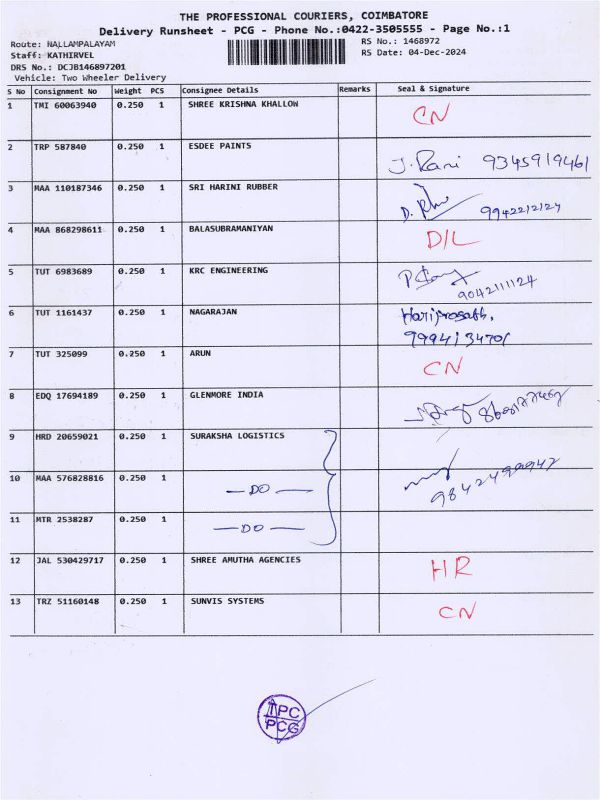 THE PROFESSIONAL COURIERS, COIMBATORE
Delivery Runsheet - PCG - Phone No.:0422-3505555 - Page No.:1
Route: NALLAMPALAYAM
RS No.: 1468972
Staff: KATHIRVEL
RS Date: 04-Dec-2024
DRS No.: DCJB146897201
Vehicle: Two Wheeler Delivery
S No Consignment No Weight PCS Consignee Details Remarks Seal & Signature
1 TMI 60063940 0.250 1 SHREE KRISHNA KHALLOW CN
2 TRP 587840 0.250 1 ESDEE PAINTS J. Rani 9345919461
3 MAA 110187346 0.250 1 SRI HARINI RUBBER 9942212124
4 MAA 868298611 0.250 1 BALASUBRAMANIYAN D/L
5 TUT 6983689 0.250 1 KRC ENGINEERING
9042111124
6 TUT 1161437 0.250 1 NAGARAJAN Hariprasath,
9994134701
7 TUT 325099 0.250 1 ARUN CN
8 EDQ 17694189 0.250 1 GLENMORE INDIA
9 HRD 20659021 0.250 1 SURAKSHA LOGISTICS
10 MAA 576828816 0.250 1 — DO — 9842499942
11 MTR 2538287 0.250 1 — DO —
12 JAL 530429717 0.250 1 SHREE AMUTHA AGENCIES HR
13 TRZ 51160148 0.250 1 SUNVIS SYSTEMS CN
TPC
PCG